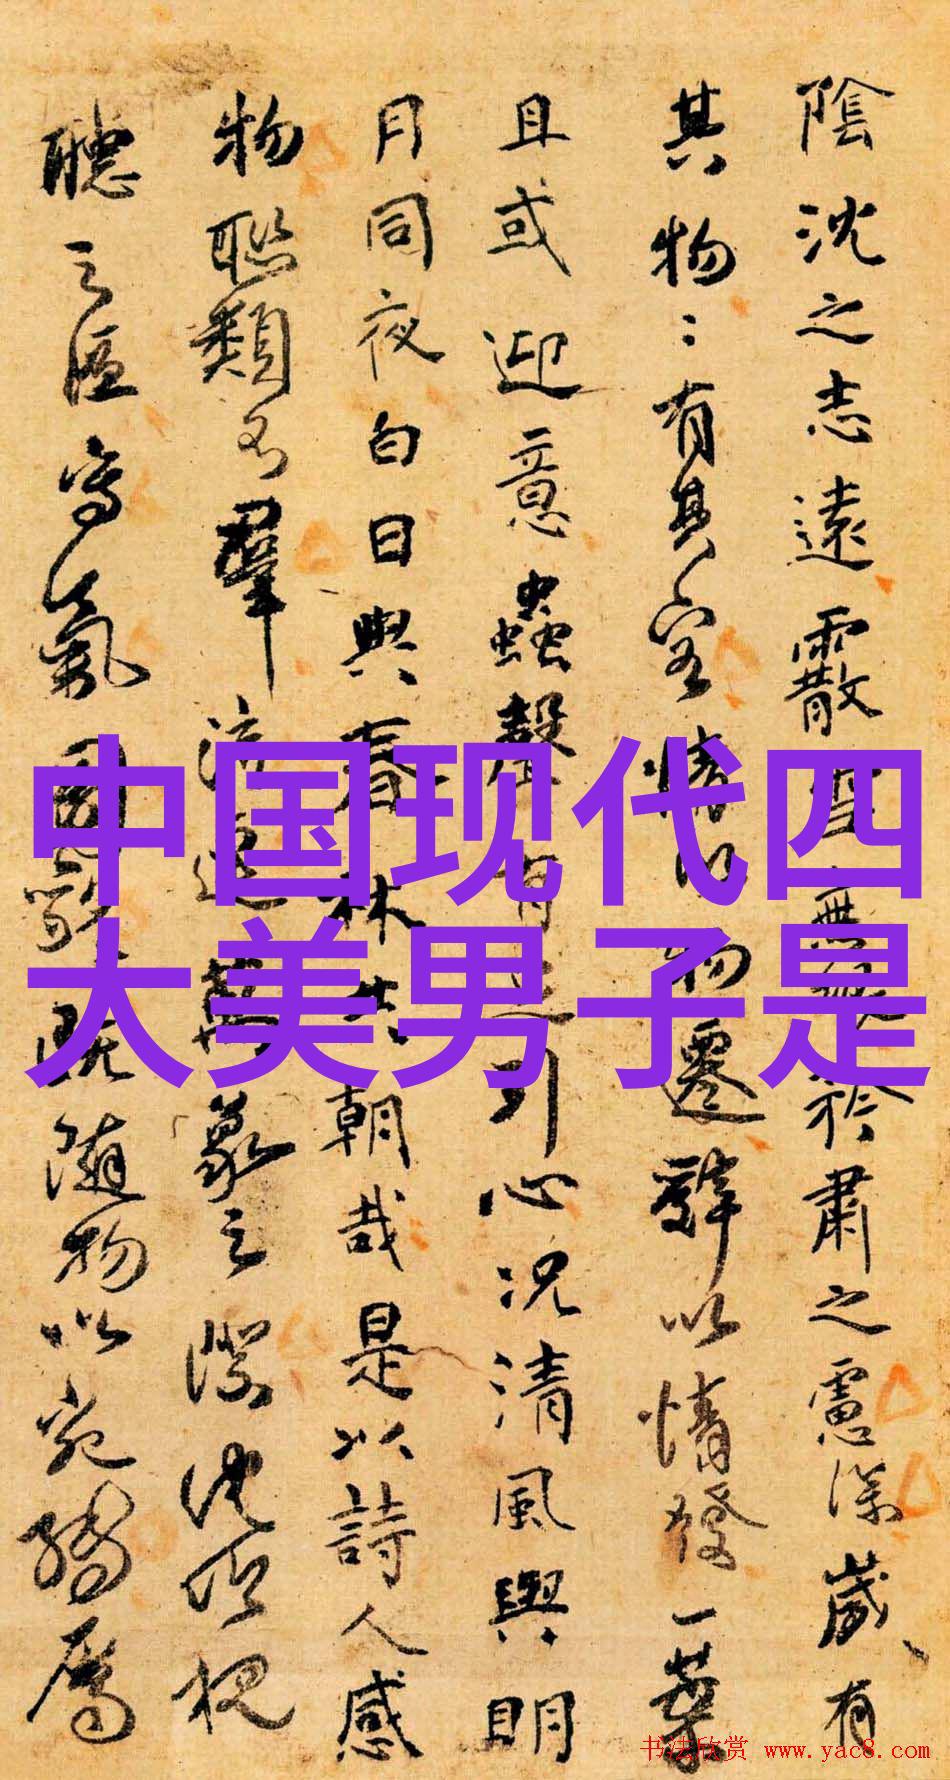 中国现代四
大美男子是
陰沈之志遠霰雪無垠矜肅之慮深歲有
其物〻有其容情以物遷辭以情發一葉
且或迎意蟲聲有足引心況清風與明
月同夜白日與春林共朝哉是以詩人感
物聯類不流連萬象之際沈吟視
聽之區寫氣圖貌既隨物以宛轉屬
书法欣赏 www.yac8.com